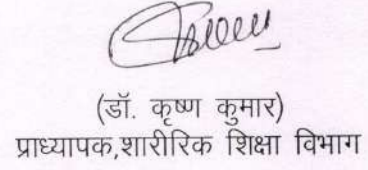 (डॉ. कृष्ण कुमार)
प्राध्यापक,शारीरिक शिक्षा विभाग